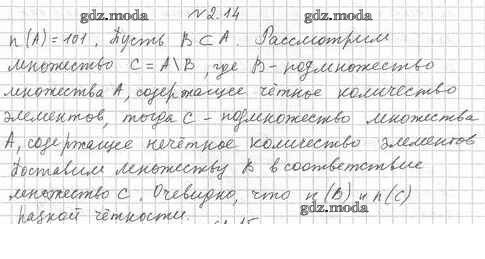 gdz.moda №2.14 gdz.moda
n(A)=101. Пусть B⊂A. Рассмотрим
множество C=A\B, где B-подмножество
множества A, содержащее чётное количество
элементов, тогда C - подмножество множества
A, содержащее нечётное количество элементов
Поставим множеству B в соответствие
множество C. Очевидно, что n(B) и n(C)
gdz.moda
разной чётности.